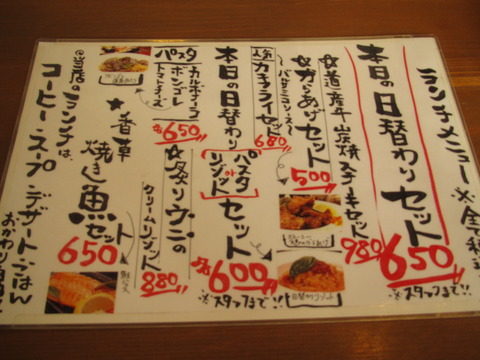 ランチメニュー ※全て税込
本日の日替わりセット
650
※スタッフまで!!
☆道産牛炭焼ステーキセット
980
☆からあげセット
〜バルサミコソース〜
500
人気 カキフライセット
680
本日の日替わり
パスタ or リゾット
セット
600
※スタッフまで!!
日替わりリゾット
パスタ
カルボナーラ
ボンゴレ
トマトチーズ
各650
☆炙りウニの
クリームリゾット
880
★香草焼き魚セット
650
@当店のランチは、
コーヒー・スープ デザート・ごはん
おかわり自由